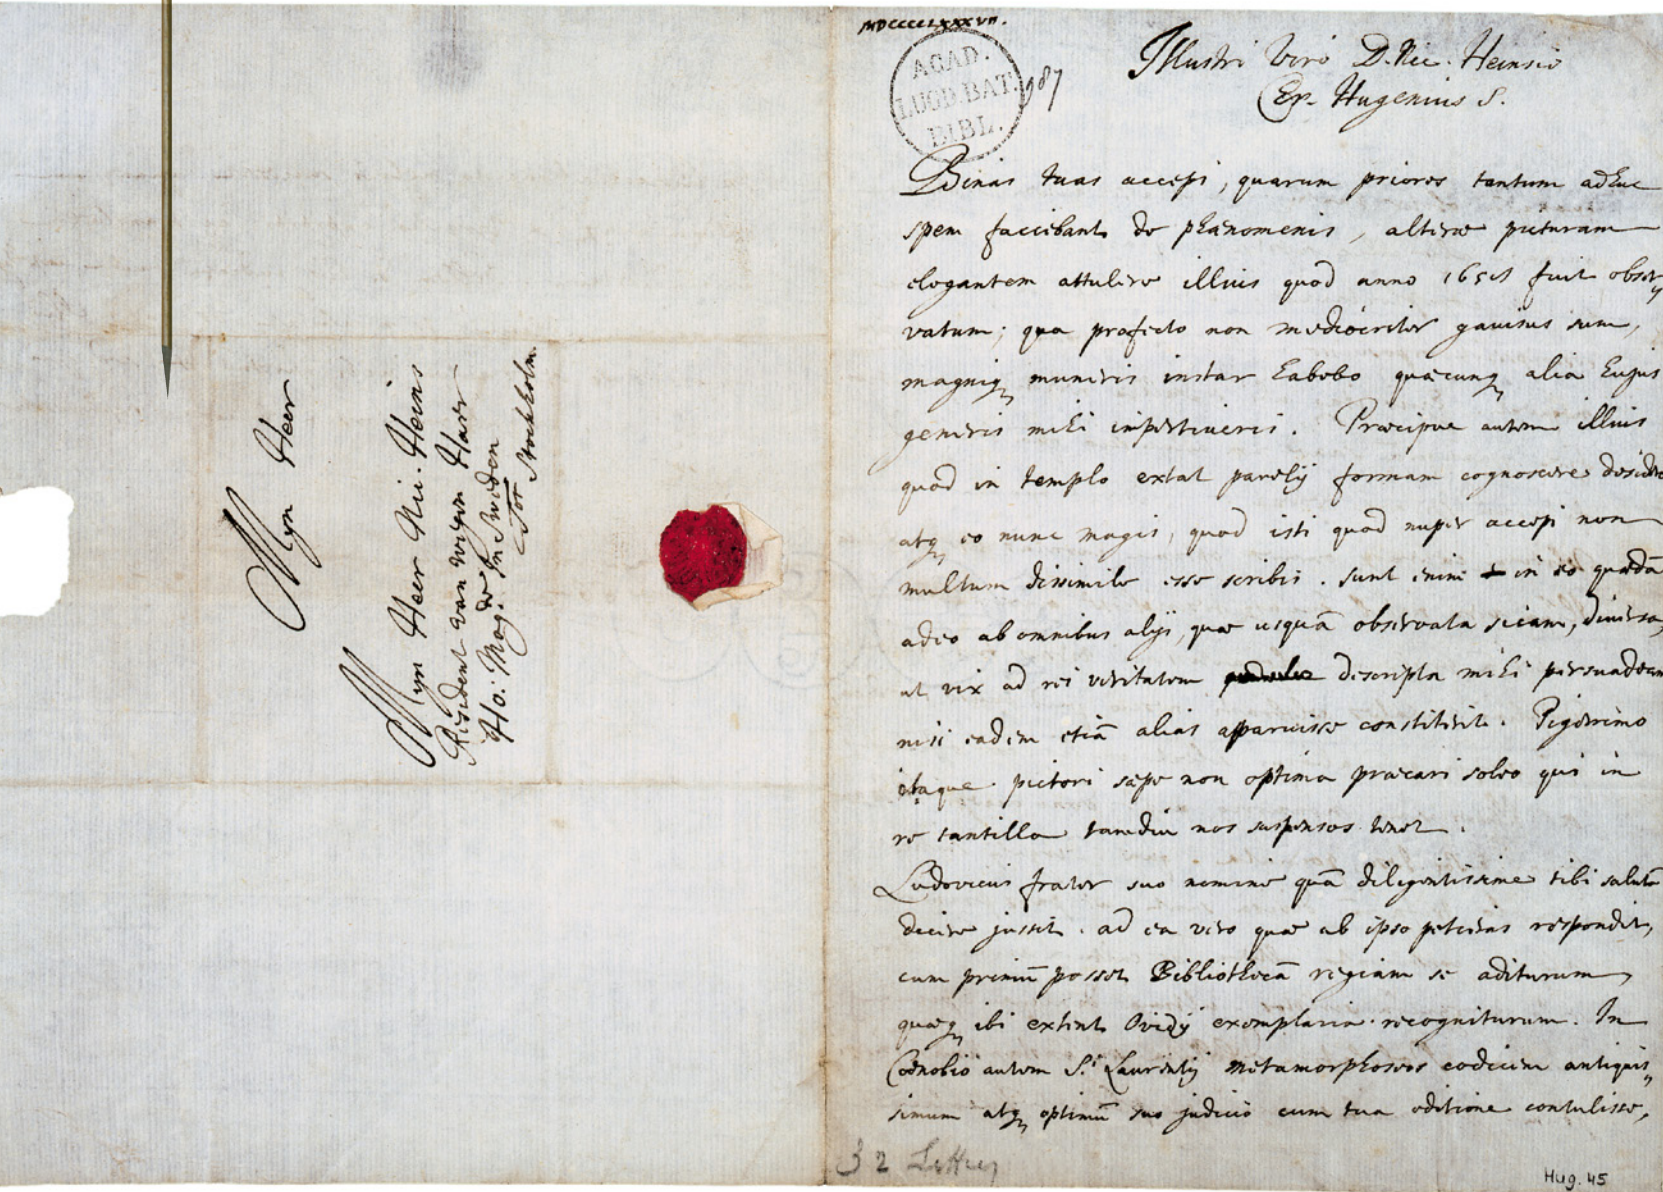 Myn Heer
Myn Heer Nic. Heins
Resident van wegen Haer
Ho: Mog. de in Sweden
Tot Stockholm.
MDCCCCLXXXVII.
ACAD.
LUGD. BAT.
BIBL.
987
Illustri Viro D. Nic. Heinsio
Chr. Hugenius S.
Binas tuas accepi, quarum priores tantum adhuc
spem faciebant de phaenomenis, alterae picturam
elegantem attulere illius quod anno 1651 fuit obser
vatum; qua profecto non mediocriter gavisus sum,
magnique muneris instar habebo quaecunque alia hujus
generis mihi impertiveris. Praecipue autem illius
quod in templo extat parelij formam cognoscere desidero
atque eo nunc magis, quod isti quod nuper accepi non
multum dissimile esse scribis. sunt enim in eo quaedã
adeo ab omnibus alijs, quae usquã observata sciam, diversa,
ut vix ad rei veritatem descripta mihi persuadeam
nisi eadem etiã alias apparuisse constiterit. Pigerrimo
itaque pictori saepe non optima praecari soleo qui in
re tantilla tamdiu nos suspensos tenet.
Ludovicus frater suo nomine quã diligentissime tibi salutẽ
dicere jussit. ad ea vero quae ab ipso petieras respondit,
cum primũ posset Bibliothecã regiam se aditurum,
quaeque ibi extent Ovidij exemplaria recogniturum. In
Coenobio autem S.ti Laurentij metamorphoseos codicem antiquis
simum atque optimũ suo judicio cum tua editione contulisse,
32
Hug. 45